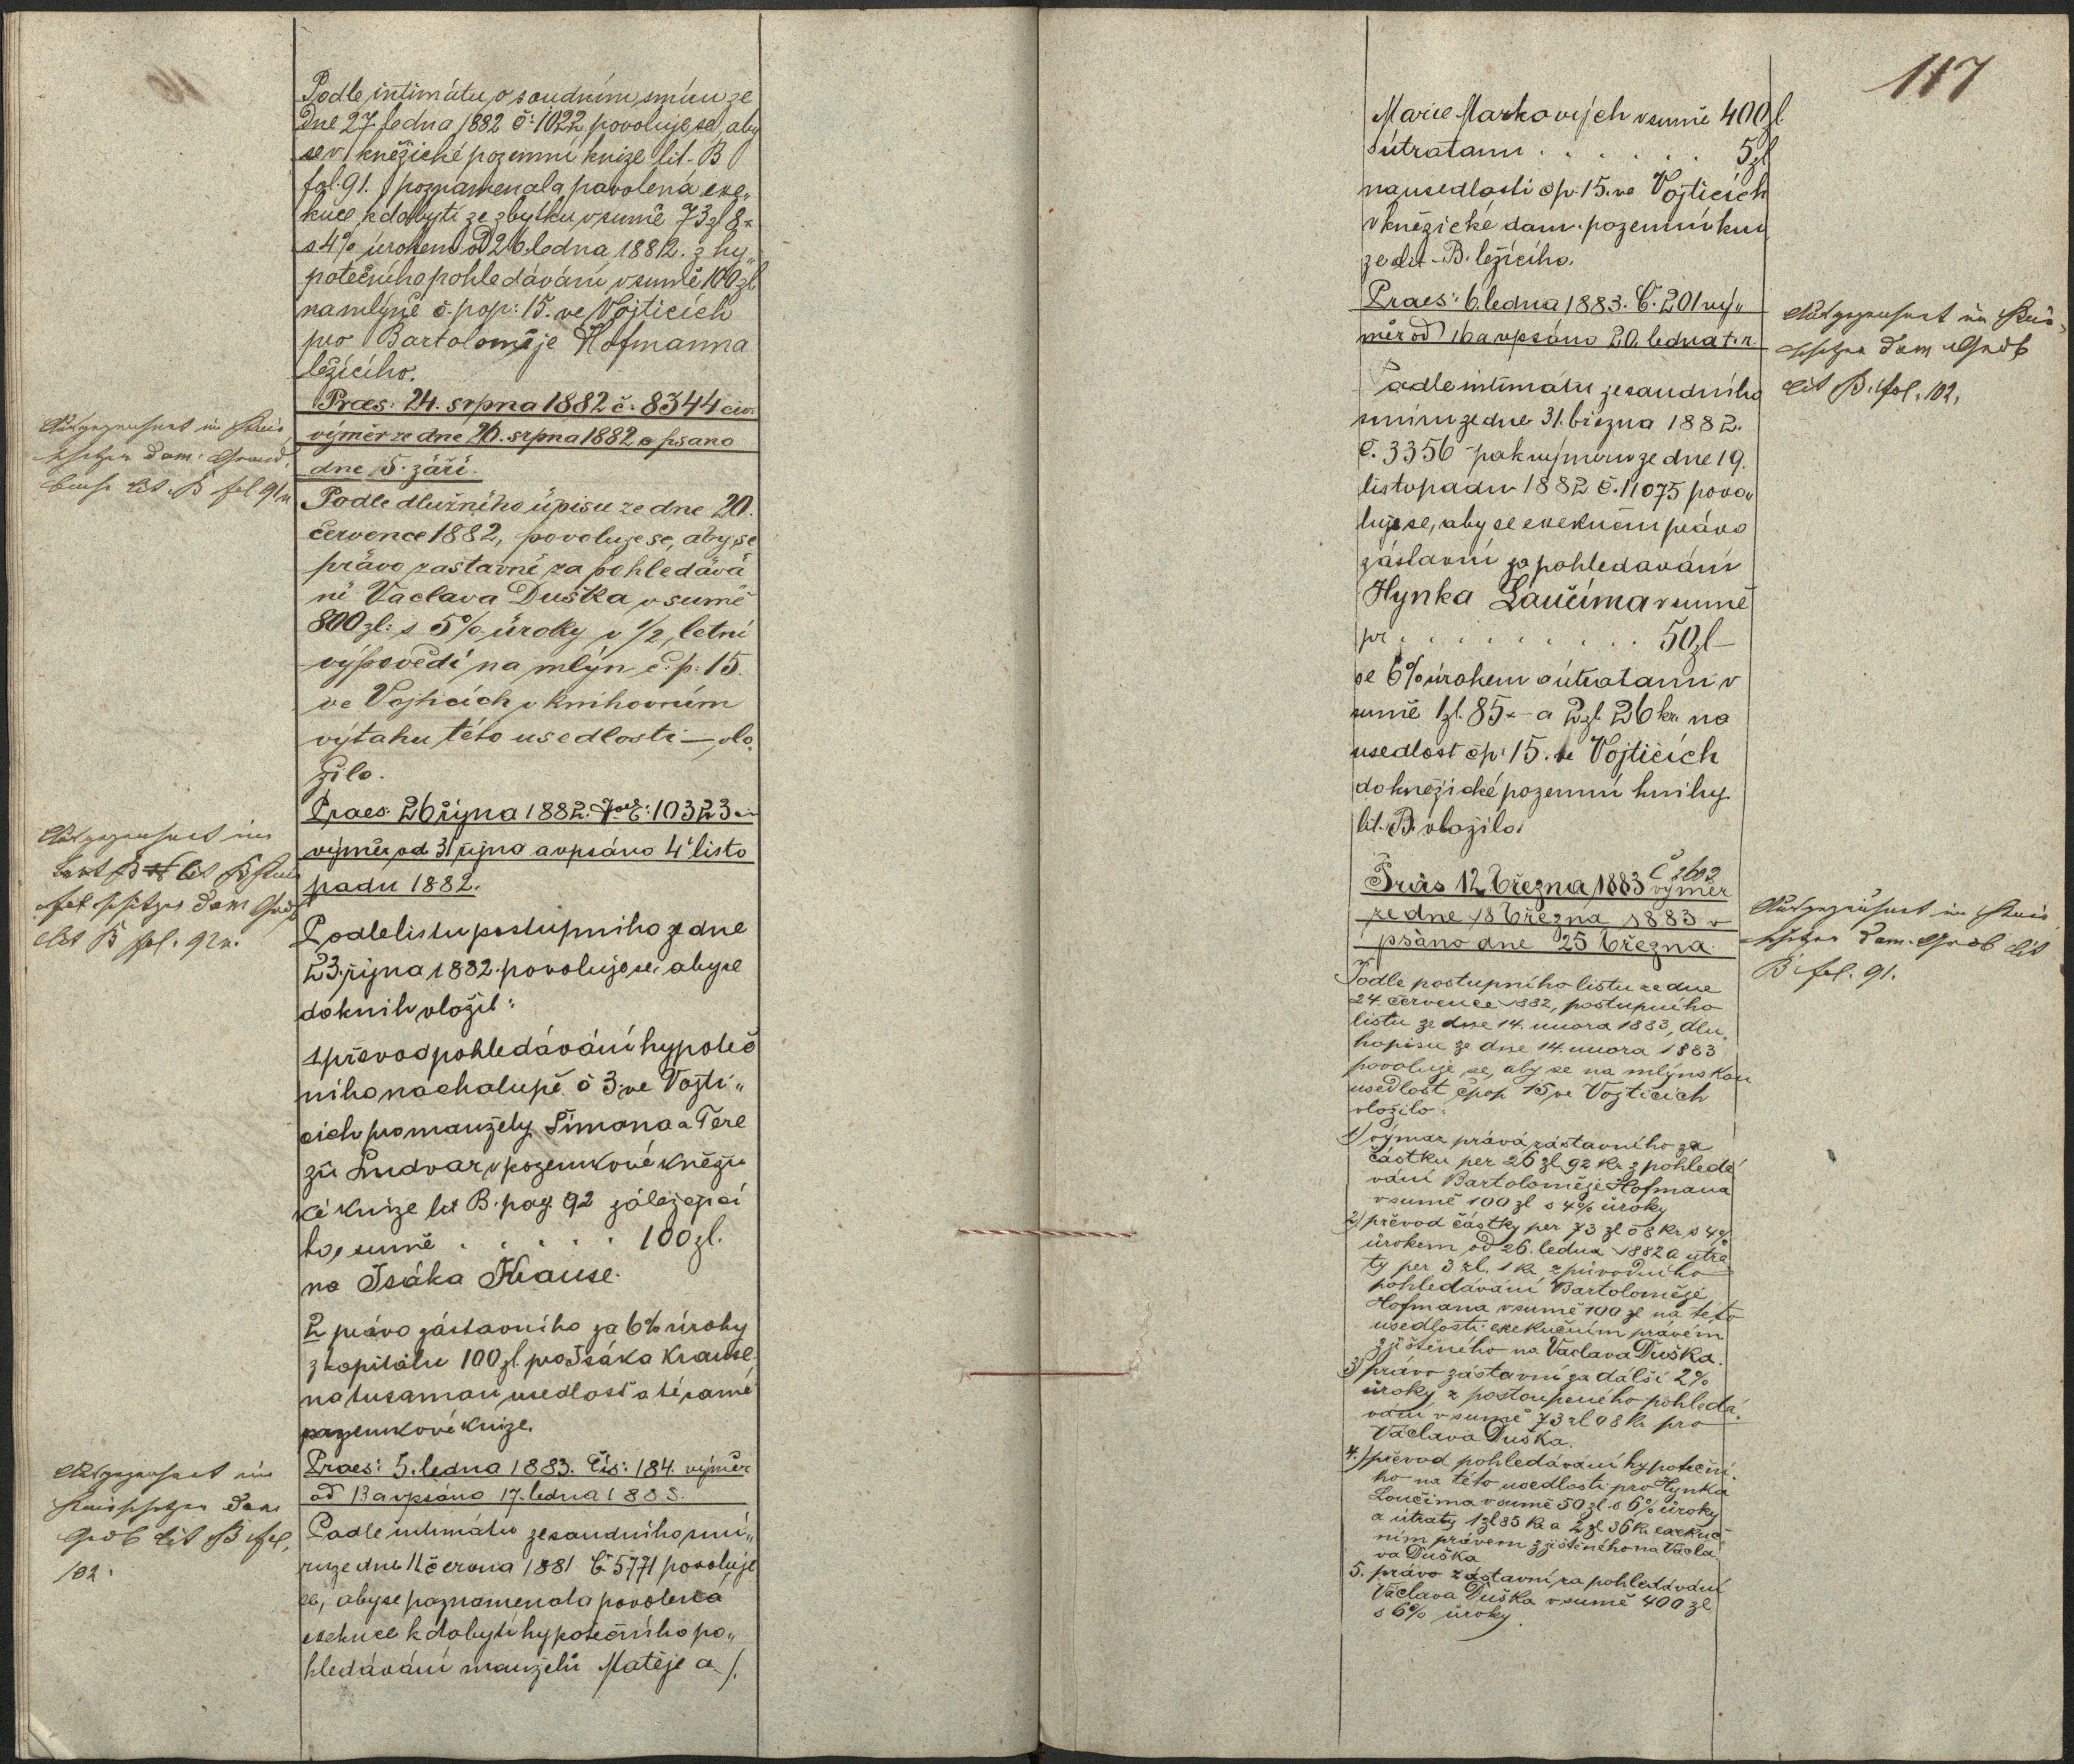 Podle intimátu o soudním smíru ze
dne 27. ledna 1882 č: 1022 povoluje se, aby
se v kněžické pozemní knize lit. B
fol. 91. poznamenala povolená exe„
kuce k dobytí ze zbytku v sumě 73 zl 8 x
s 4% úrokem od 26. ledna 1882. z hy„
potečního pohledávání v sumě 100 zl.
na mlýně č. pop: 15. ve Vojticích
pro Bartoloměje Hofmanna
ležícího.
Praes: 24. srpna 1882 č: 8344 civ.
výměr ze dne 26. srpna 1882 a psano
dne 5. září.
Podle dlužního úpisu ze dne 20.
července 1882, povoluje se, aby se
právo zástavné za pohledává
ní Václava Duška v sumě
800 zl: s 5% úroky v ½ letní
výpovědí na mlýn č. p: 15.
ve Vojticích v knihovním
výtahu této usedlosti – vlo
žilo.
Praes: 26 října 1882. 10323
výměr od 31 října a vpsáno 4 listo
padu 1882.
Podle listu postupního ze dne
23. října 1882. povoluje se, aby se
do knih vložil:
1 převod pohledávání hypoteč
ního na chalupě č 3. ve Vojti„
cích pro manžely Šimona a Tere
zii Ludvar v pozemkové kněži
cké knize lit B. pag. 92 záležejicí
ho, v sumě . . . . . 100 zl.
na Isáka Krause.
2 právo zástavního za 6% úroky
z kapitálu 100 zl. pro Isáka Krause
na tu samau usedlost a té samé
pozemkové knize.
Praes: 5. ledna 1883. Čís: 184. výměr
od 13 a vpsáno 17. ledna 1883.
Podle intimátu ze saudního smí„
ru ze dne 11 června 1881 Č 5771 povoluje
se, aby se poznamenala povolená
exekuce k dobytí hypotečního po„
hledávání manželů Matěje a /.
im
dom.
lit. B fol 91
im
lit B
dom
lit B fol. 92
im
Dom
lit B fol.
102.
117
Marie Markových v sumě 400 zl.
s útratami . . . . . . 5 zl
na usedlosti čp. 15. ve Vojticích
v kněžické dom. pozemní kni
ze lit. B. ležícího.
Praes: 6. ledna 1883. Č. 201 vý„
měr od 16 a vpsáno 20. ledna t. r.
Podle intimátu ze saudního
smíru ze dne 31. března 1882.
č. 3356 pak výměru ze dne 19.
listopadu 1882 č. 11075 povo„
luje se, aby se exekuční právo
zástavní za pohledavání
Hynka Laučima v sumě
pr . . . . . . . . 50 zl –
se 6% úrokem a útratami v
sumě 1 zl. 85 x – a 2 zl 26 kr. na
usedlost čp: 15. ve Vojticích
do kněžické pozemní knihy
lit. B. vložilo.
Präs 12. března 1883 Č 2602 výměr
ze dne 18 března 1883 v
psáno dne 25 března.
Podle postupního listu ze dne
24. července 1882, postupního
listu ze dne 14. unora 1883, dlu
hopisu ze dne 14. unora 1883
povoluje se, aby se na mlýnskou
usedlost čpop 15 ve Vojticích
vložilo:
1) výmaz práva zástavního za
částku per 26 zl 92 kr z pohledá
vání Bartoloměje Hofmana
v sumě 100 zl s 4% úroky
2) převod částky per 73 zl 08 kr s 4%
úrokem od 26. ledna 1882 a útra
ty per 3 zl. 1 kr z původního
pohledávání Bartoloměje
Hofmana v sumě 100 zl na této
usedlosti exekučním právem
zjištěného na Václava Duška.
3) právo zástavní za další 2%
úroky z postoupeného pohledá
vání v sumě 73 zl 08 kr pro
Václava Duška.
4.) převod pohledávání hypoteční
ho na této usedlosti pro Hynka
Loučima v sumě 50 zl. s 6% úroky
a útraty 1 zl 85 kr a 2 zl 36 kr exekuč
ním právem zjištěného na Václa
va Duška
5. právo zástavní za pohledávání
Václava Duška v sumě 400 zl
s 6% úroky.
dom
lit B. fol. 102.
im
dom. lit
B fol. 91.